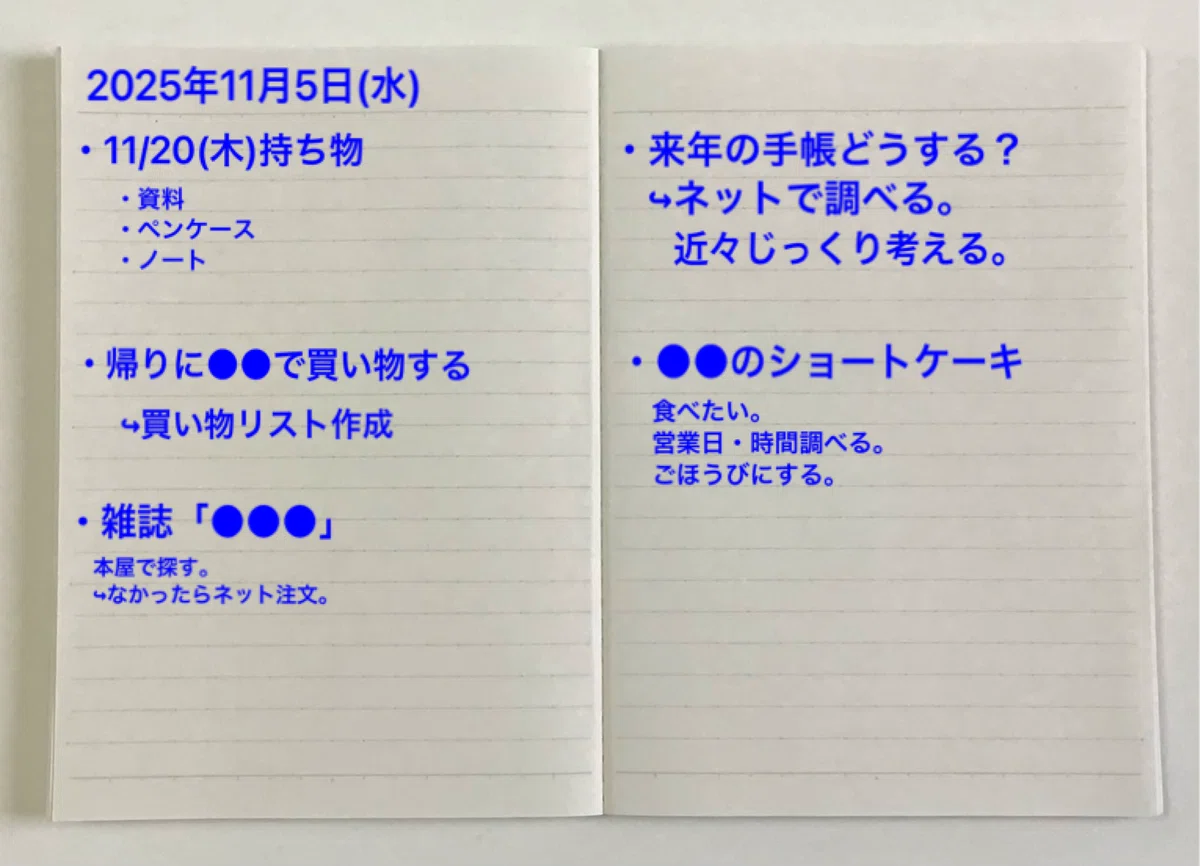 2025年11月5日(水)
・11/20(木)持ち物
・資料
・ペンケース
・ノート
・帰りに●●で買い物する
↪買い物リスト作成
・雑誌「●●●」
本屋で探す。
↪なかったらネット注文。
・来年の手帳どうする？
↪ネットで調べる。
近々じっくり考える。
・●●のショートケーキ
食べたい。
営業日・時間調べる。
ごほうびにする。